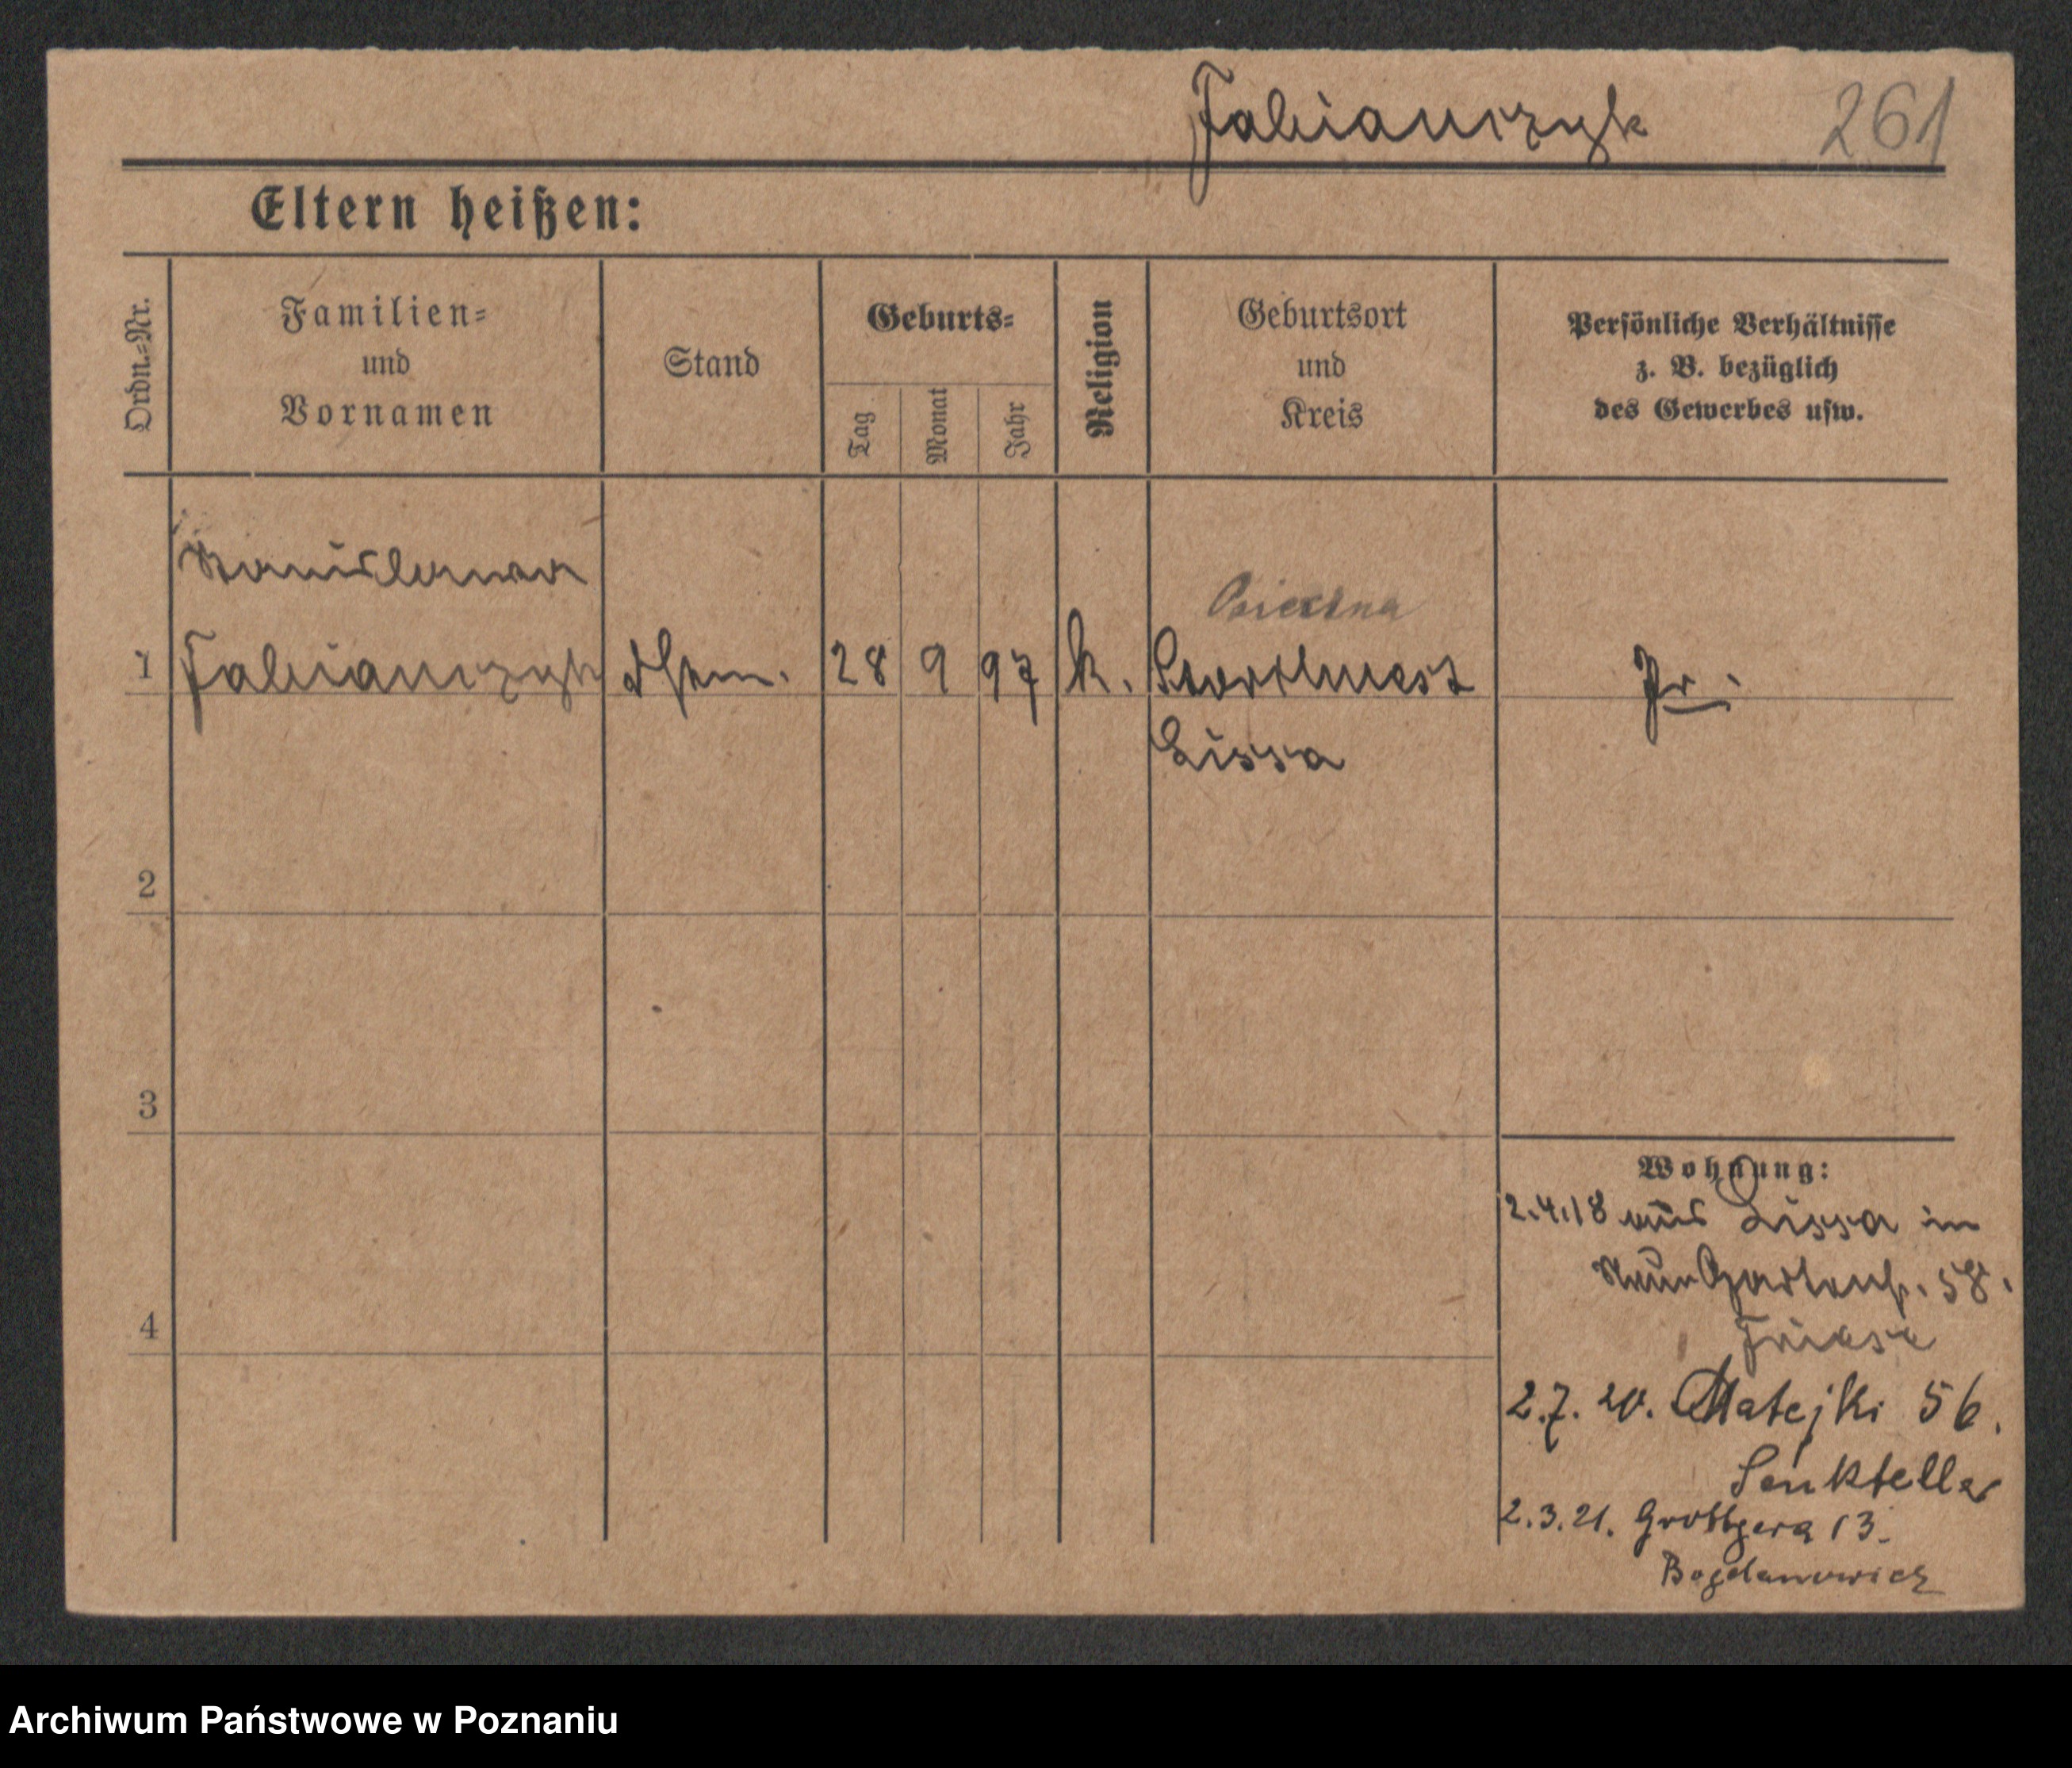 Fabianczyk 261
Eltern heißen:
Ordn.=Nr.
Familien=
und
Vornamen
Stand
Geburts=
Tag
Monat
Jahr
Religion
Geburtsort
und
Kreis
Persönliche Verhältnisse
z. B. bezüglich
des Gewerbes usw.
Stanislawa
Osieczna
1 Fabianczyk 28 9 97 k. Storchnest Pr.
Lissa
2
3
4
Wohnung:
2.4.18 aus Lissa in
Neue Gartenstr. 58.
2.7.20. Matejki 56.
Senkteller
2.3.21. Grottgera 13.
Bogdanowicz
Archiwum Państwowe w Poznaniu